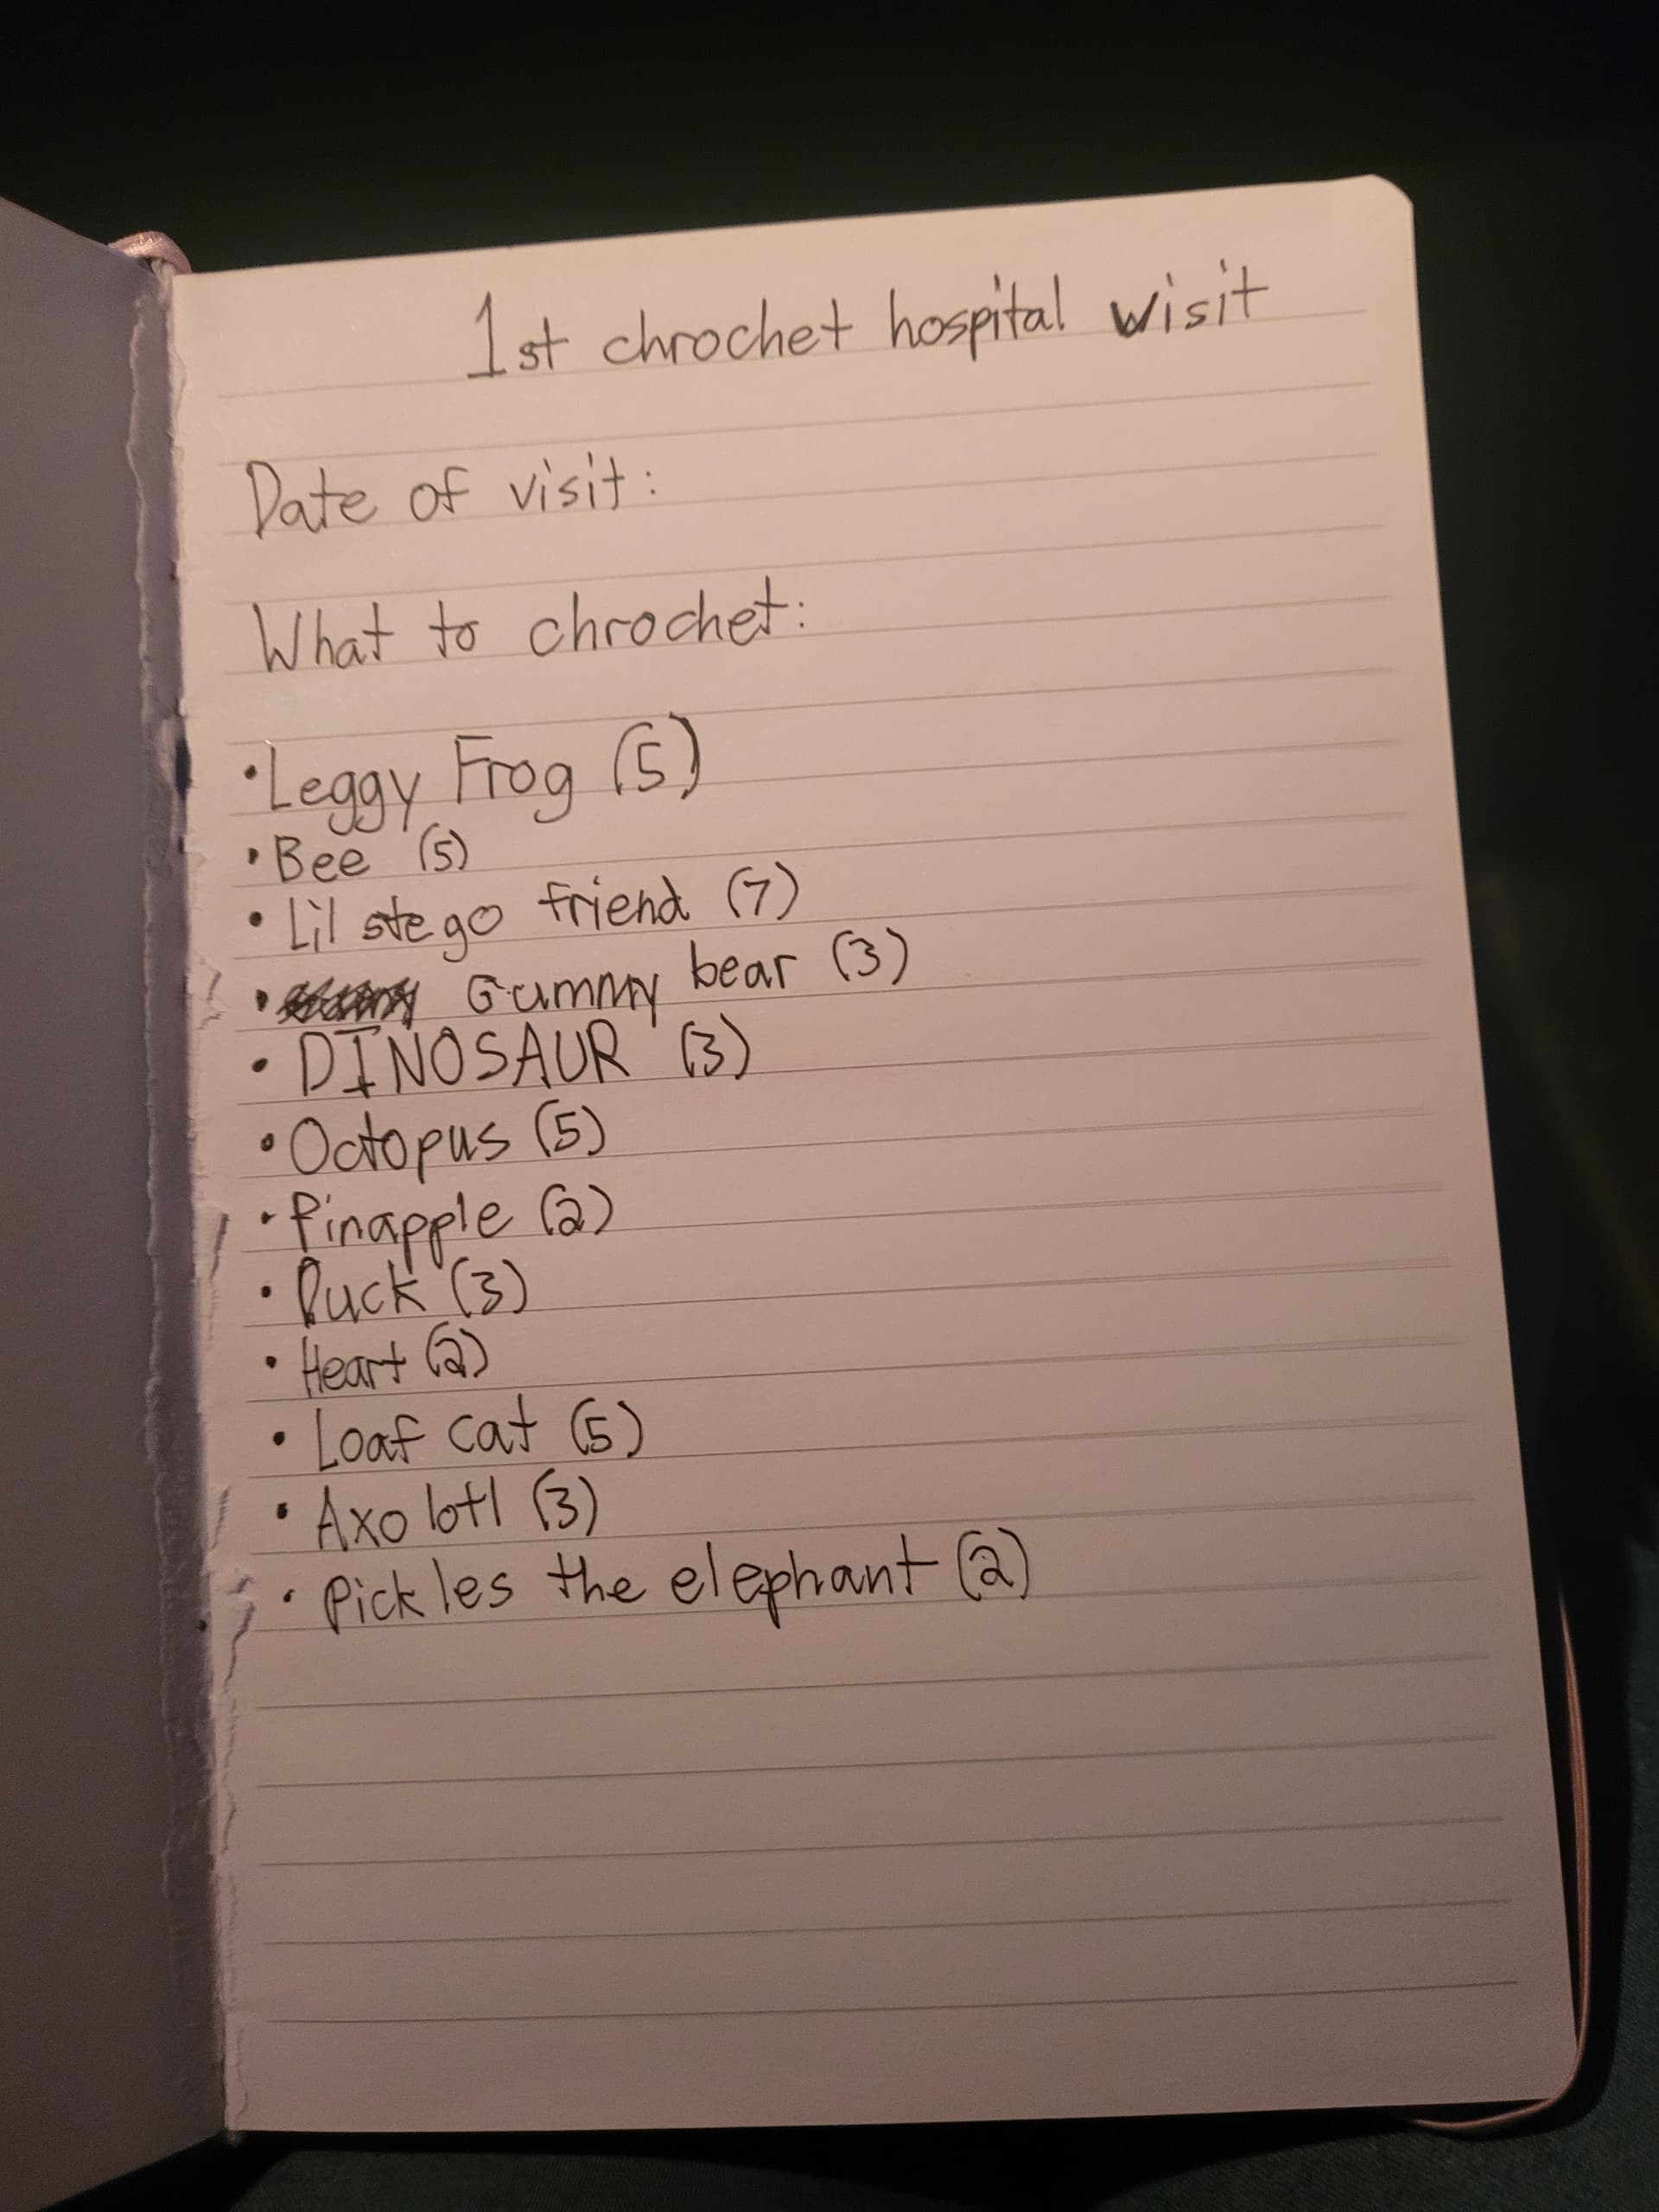 1st chrochet hospital visit
Date of visit:
What to chrochet:
•Leggy Frog (5)
•Bee (5)
•Lil stego friend (7)
• Gummy bear (3)
•DINOSAUR (3)
•Octopus (5)
•Pinapple (2)
•Duck (3)
•Heart (2)
•Loaf cat (5)
•Axolotl (3)
•Pickles the elephant (2)